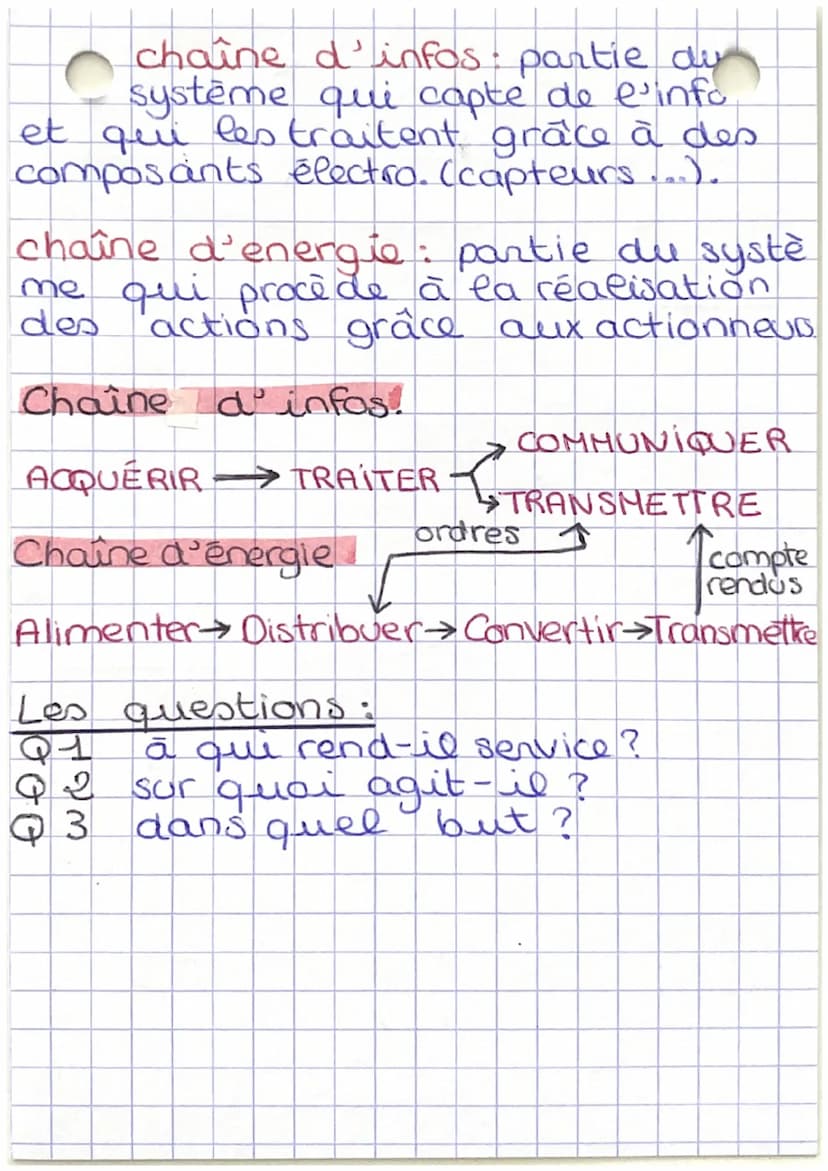 chaîne d'infos: partie du
système qui capte de l'info
et qui les traitent grâce à des
composants électro. (capteurs ...).
chaîne d'energie: partie du systè
me qui procède à la réalisation
des actions grâce aux actionneurs
Chaîne d'infos:
COMMUNIQUER
ACQUÉRIR → TRAITER
TRANSMETTRE
ordres
Chaîne d'énergie
compte
rendus
Alimenter → Distribuer → Convertir → Transmettre
Les questions:
Q1 à qui rend-il service?
Q2 sur quoi agit-il?
Q3 dans quel but?